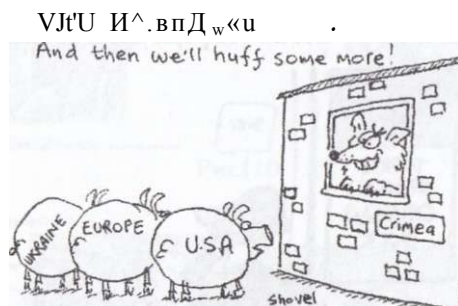 VJt'U И^.впД w«u .
And then we'll huff some more!
UKRAINE
EUROPE
U.S.A
Crimea
shovel